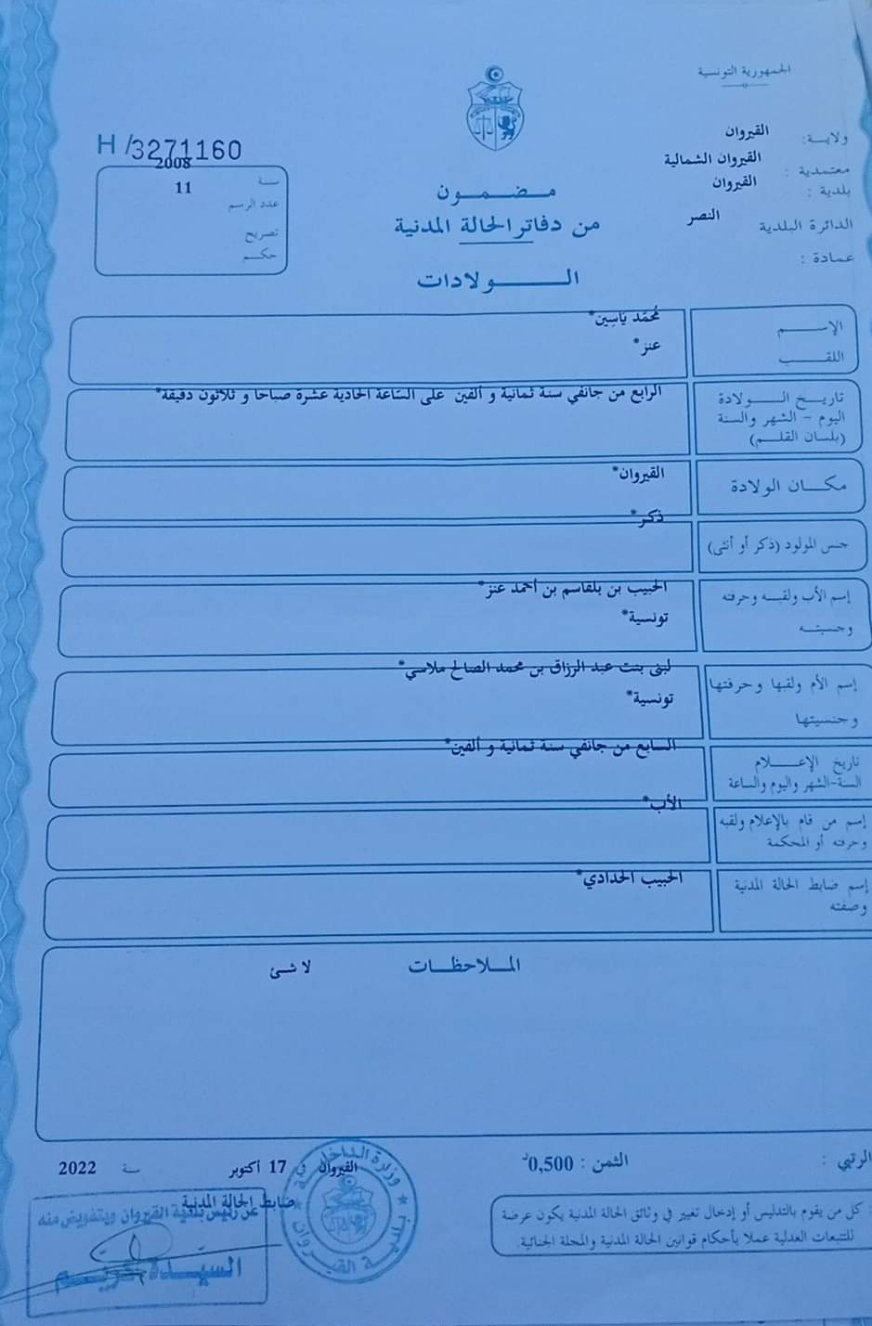 الجمهورية التونسية
ولاية: القيروان
معتمدية : القيروان الشمالية
بلدية : القيروان
الدائرة البلدية النصر
عمادة :
H /3271160
سنة 2008
عدد الرسم 11
تصريح
حكم
مضمون
من دفاتر الحالة المدنية
الولادات
الإسم محُمّد يَاسِين*
اللقب عنز*
تاريخ الولادة الرابع من جانفي سنة ثمانية و ألفين على السّاعة الحادية عشرة صباحا و ثلاثون دقيقة*
اليوم - الشهر والسنة
(بلسان القلم)
مكان الولادة القيروان*
جنس المولود (ذكر أو أنثى) ذكر*
إسم الأب ولقبه وحرفته الحبيب بن بلقاسم بن أحمد عنز*
وجنسيته تونسية*
إسم الأم ولقبها وحرفتها لبنى بنت عبد الرزاق بن محمد الصالح ملاسي*
وجنسيتها تونسية*
تاريخ الإعلام السابع من جانفي سنة ثمانية و ألفين*
السنة-الشهر واليوم والساعة
إسم من قام بالإعلام ولقبه الأب*
وحرفته أو المحكمة
إسم ضابط الحالة المدنية الحبيب الحدادي*
وصفته
الملاحظات لا شئ
الرتبي :
الثمن : 0,500د
القيروان 17 أكتوبر سنة 2022
ضابط الحالة المدنية
عن رئيس بلدية القيروان وبتفويض منه
السيّدة
وزارة الداخلية
القيروان
كل من يقوم بالتدليس أو إدخال تغيير في وثائق الحالة المدنية يكون عرضة
للتبعات العدلية عملا بأحكام قوانين الحالة المدنية والمجلة الجنائية.